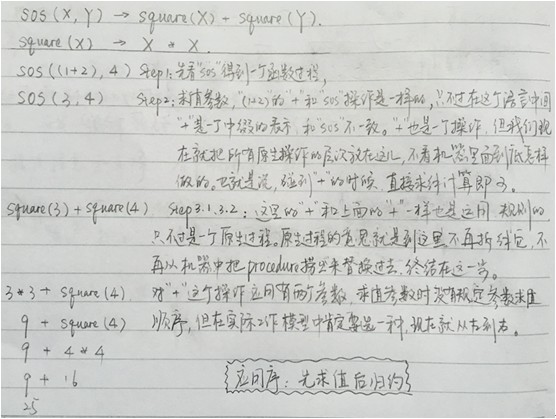 SOS (X, Y) → square(X) + square(Y).
square (X) → X * X.
SOS ((1+2), 4) Step1: 先看"sos"得到一个函数过程,
SOS (3, 4) Step2: 求值参数,"(1+2)"的"+"和"sos"操作是一样的,只不过在这个语言中间
"+"是个中缀的表示,和"sos"不一致。"+"也是一个操作,但我们现
在就把所有原生操作的层次放在这儿,不看机器里面到底怎样
做的。也就是说,碰到"+"的时候,直接求作计算即可。
square(3) + square(4) Step3.1, 3.2: 这里的"+"和上面的"+"一样也是这同规则的
只不过是一个原生过程。原生过程的意思就是到这里不再拆线包,不
再从机器中把procedure捞出来替换过去,终结在这一步。
3*3 + square(4). 对"+"这个操作立同有两个参数,求值参数时没有规定参数求值
9 + square(4) 顺序,但在实际工作模型中肯定要选一种,现在就从左到右。
9 + 4*4
9 + 16
25
应用序:先求值后归约